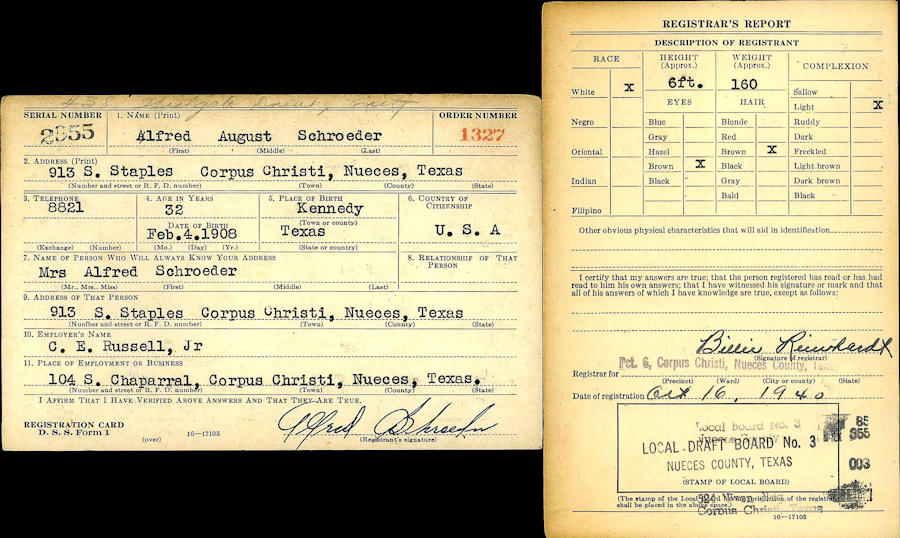 438
SERIAL NUMBER
1. NAME (Print)
ORDER NUMBER
2955
Alfred August Schroeder
1327
(First) (Middle) (Last)
2. ADDRESS (Print)
913 S. Staples Corpus Christi, Nueces, Texas
(Number and street or R. F. D. number) (Town) (County) (State)
3. TELEPHONE
4. AGE IN YEARS
5. PLACE OF BIRTH
6. COUNTRY OF CITIZENSHIP
8821
32
Kennedy
(Town or county)
DATE OF BIRTH
Feb.4.1908
Texas
U. S. A
(Exchange) (Number)
(Mo.) (Day) (Yr.)
(State or country)
7. NAME OF PERSON WHO WILL ALWAYS KNOW YOUR ADDRESS
8. RELATIONSHIP OF THAT PERSON
Mrs Alfred Schroeder
(Mr., Mrs., Miss) (First) (Middle) (Last)
9. ADDRESS OF THAT PERSON
913 S. Staples Corpus Christi, Nueces, Texas
(Number and street or R. F. D. number) (Town) (County) (State)
10. EMPLOYER'S NAME
C. E. Russell, Jr
11. PLACE OF EMPLOYMENT OR BUSINESS
104 S. Chaparral, Corpus Christi, Nueces, Texas.
I AFFIRM THAT I HAVE VERIFIED ABOVE ANSWERS AND THAT THEY ARE TRUE.
Alfred Schroeder
REGISTRATION CARD
D. S. S. Form 1
(over)
16—17105
(Registrant's signature)
REGISTRAR'S REPORT
DESCRIPTION OF REGISTRANT
RACE
HEIGHT (Approx.)
WEIGHT (Approx.)
COMPLEXION
White X
6ft.
160
Sallow
EYES
HAIR
Light X
Negro
Blue
Blonde
Ruddy
Gray
Red
Dark
Oriental
Hazel
Brown X
Freckled
Brown X
Black
Light brown
Indian
Black
Gray
Dark brown
Bald
Black
Filipino
Other obvious physical characteristics that will aid in identification
I certify that my answers are true; that the person registered has read or has had
read to him his own answers; that I have witnessed his signature or mark and that
all of his answers of which I have knowledge are true, except as follows:
Billie Reinhardt
(Signature of registrar)
Registrar for Pct. 6, Corpus Christi, Nueces County,
(Precinct) (Ward) (City or county) (State)
Date of registration Oct 16, 1940
Local Board No. 3
Nueces County
LOCAL DRAFT BOARD No. 3
NUECES COUNTY, TEXAS
85
355
003
(STAMP OF LOCAL BOARD)
Corpus Christi, Texas
(The stamp of the Local Board having jurisdiction of the registrant
shall be placed in the above space.)
16—17105